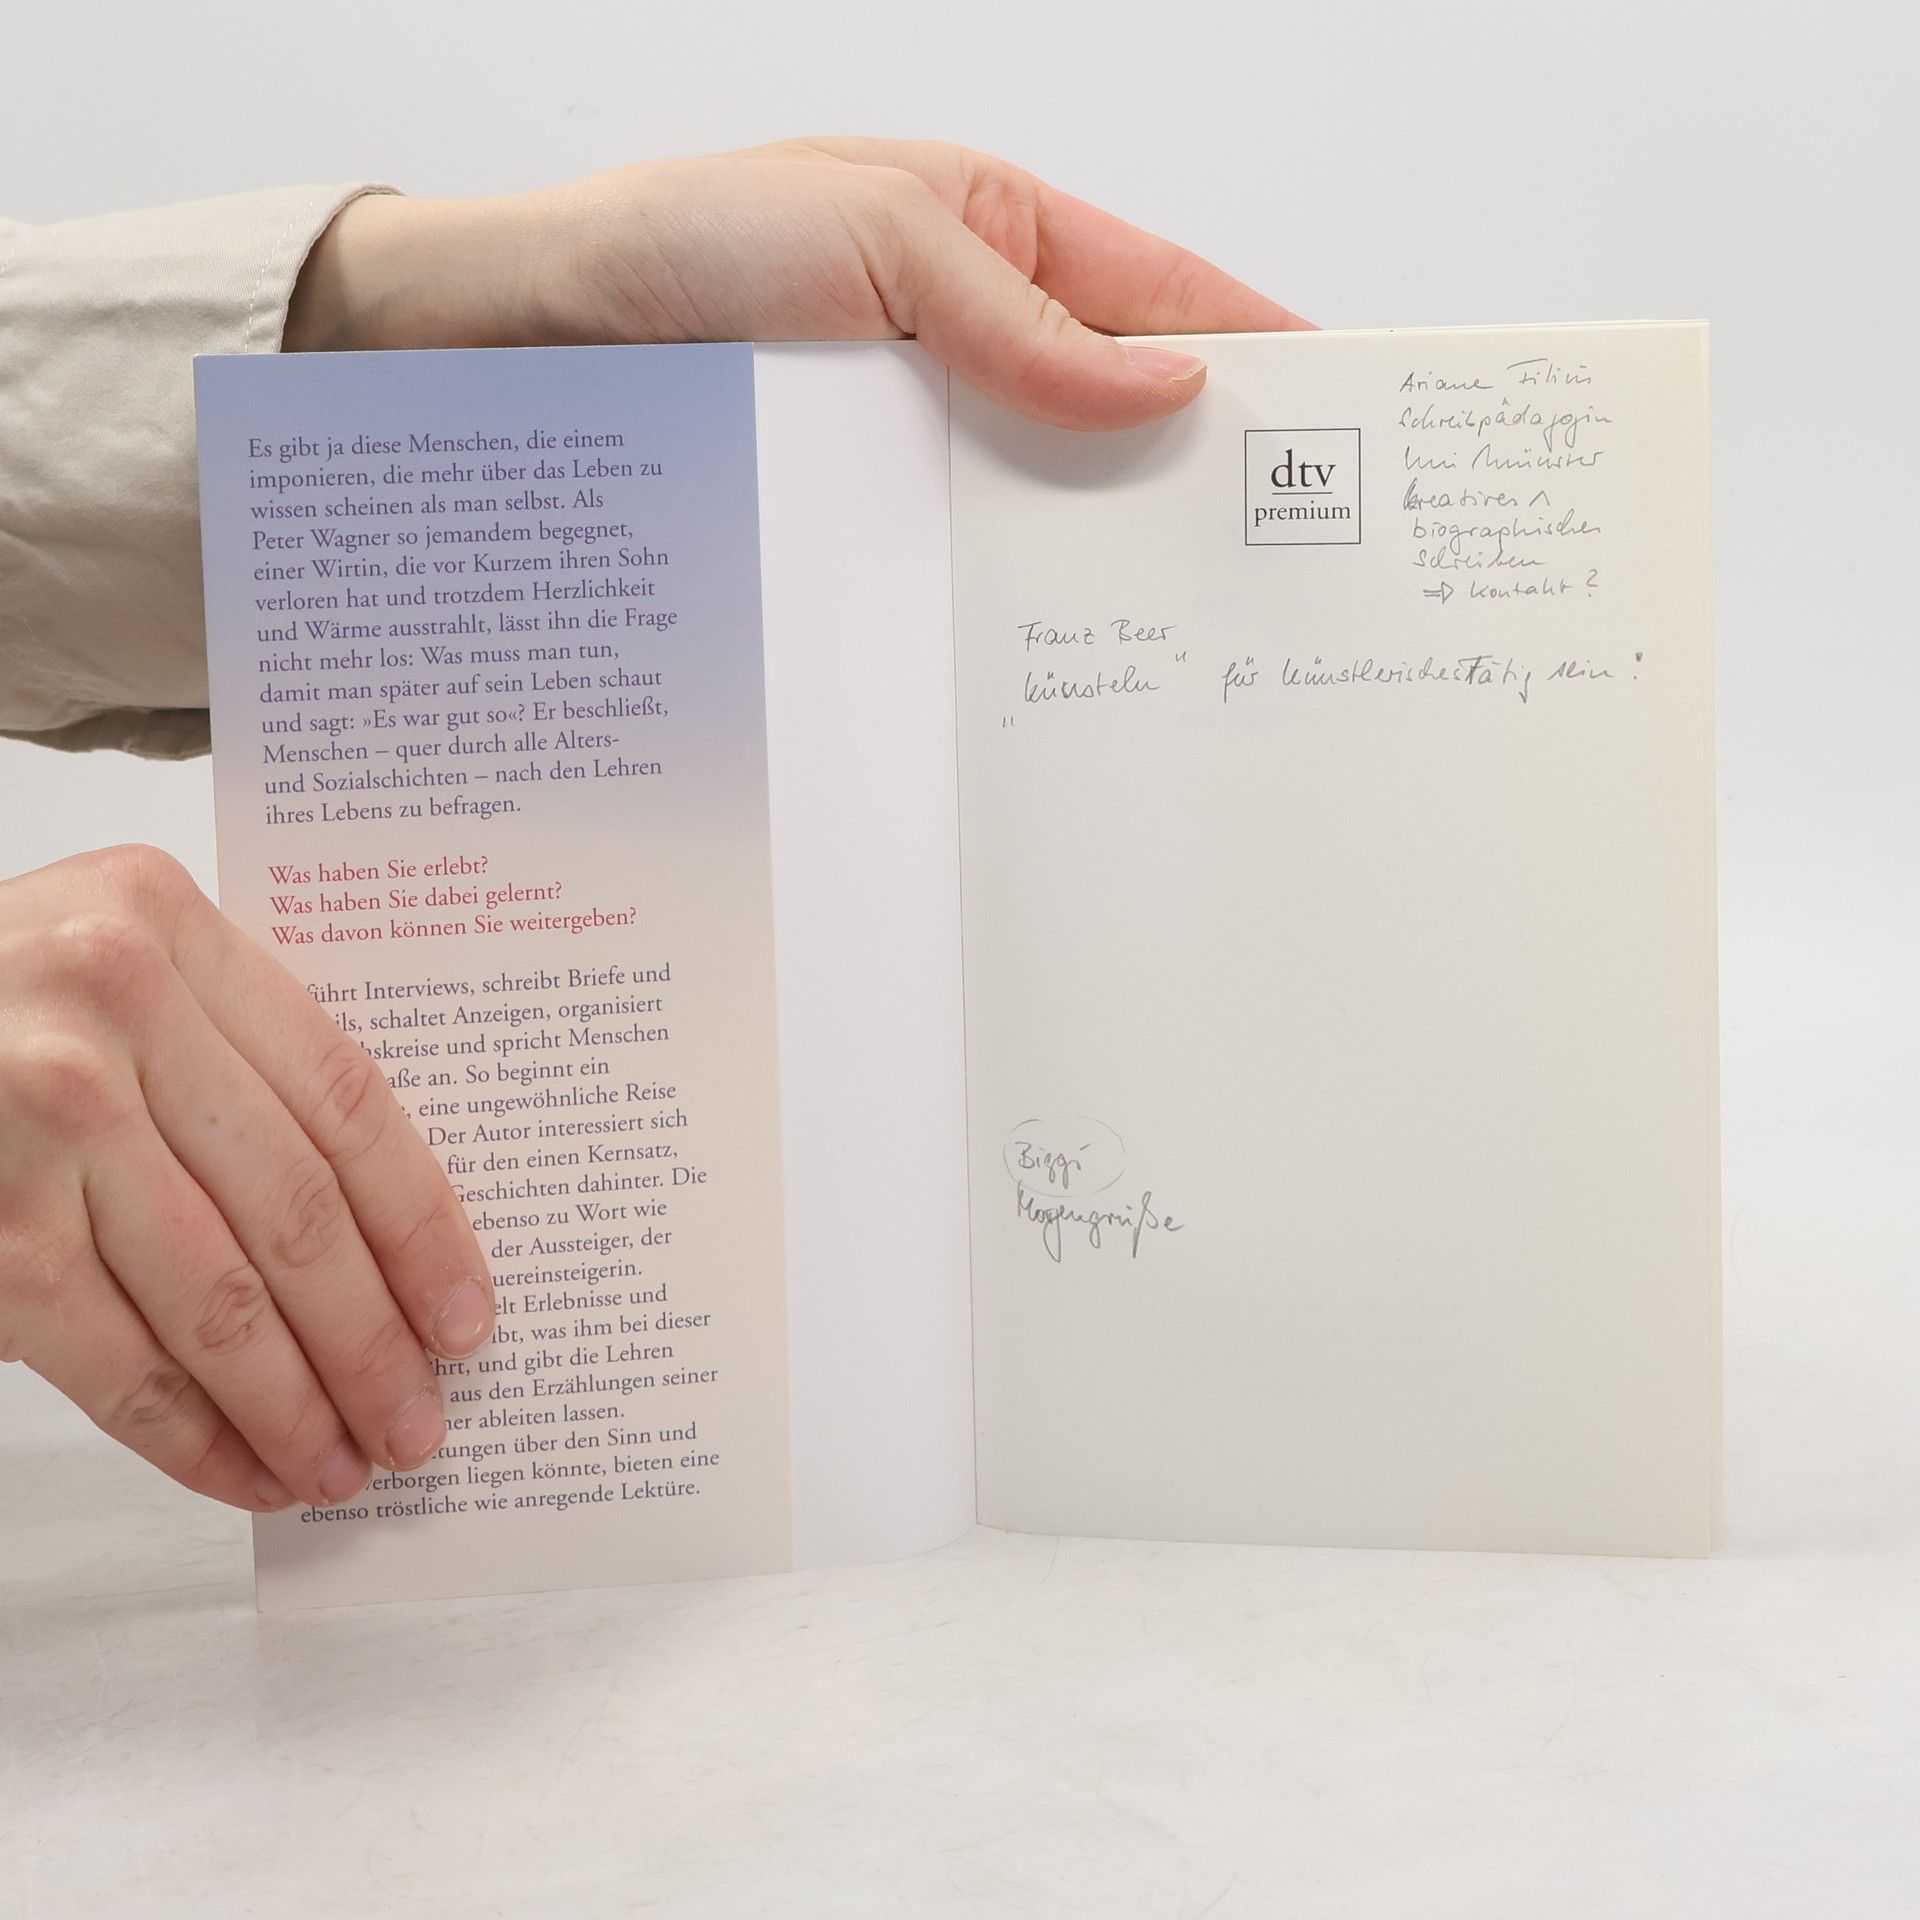 Es gibt ja diese Menschen, die einem
imponieren, die mehr über das Leben zu
wissen scheinen als man selbst. Als
Peter Wagner so jemandem begegnet,
einer Wirtin, die vor Kurzem ihren Sohn
verloren hat und trotzdem Herzlichkeit
und Wärme ausstrahlt, lässt ihn die Frage
nicht mehr los: Was muss man tun,
damit man später auf sein Leben schaut
und sagt: »Es war gut so«? Er beschließt,
Menschen – quer durch alle Alters-
und Sozialschichten – nach den Lehren
ihres Lebens zu befragen.
Was haben Sie erlebt?
Was haben Sie dabei gelernt?
Was davon können Sie weitergeben?
führt Interviews, schreibt Briefe und
ils, schaltet Anzeigen, organisiert
skreise und spricht Menschen
aße an. So beginnt ein
, eine ungewöhnliche Reise
Der Autor interessiert sich
für den einen Kernsatz,
Geschichten dahinter. Die
ebenso zu Wort wie
der Aussteiger, der
uereinsteigerin.
elt Erlebnisse und
ibt, was ihm bei dieser
hrt, und gibt die Lehren
aus den Erzählungen seiner
ner ableiten lassen.
tungen über den Sinn und
verborgen liegen könnte, bieten eine
ebenso tröstliche wie anregende Lektüre.
dtv
premium
Ariane Filius
Schreibpädagogin
Uni Münster
kreatives
biographisches
Schreiben
⇒ Kontakt?
Franz Beer
„künsteln" für künstlerisches Tätig sein!
Biggi
Mogengrüße